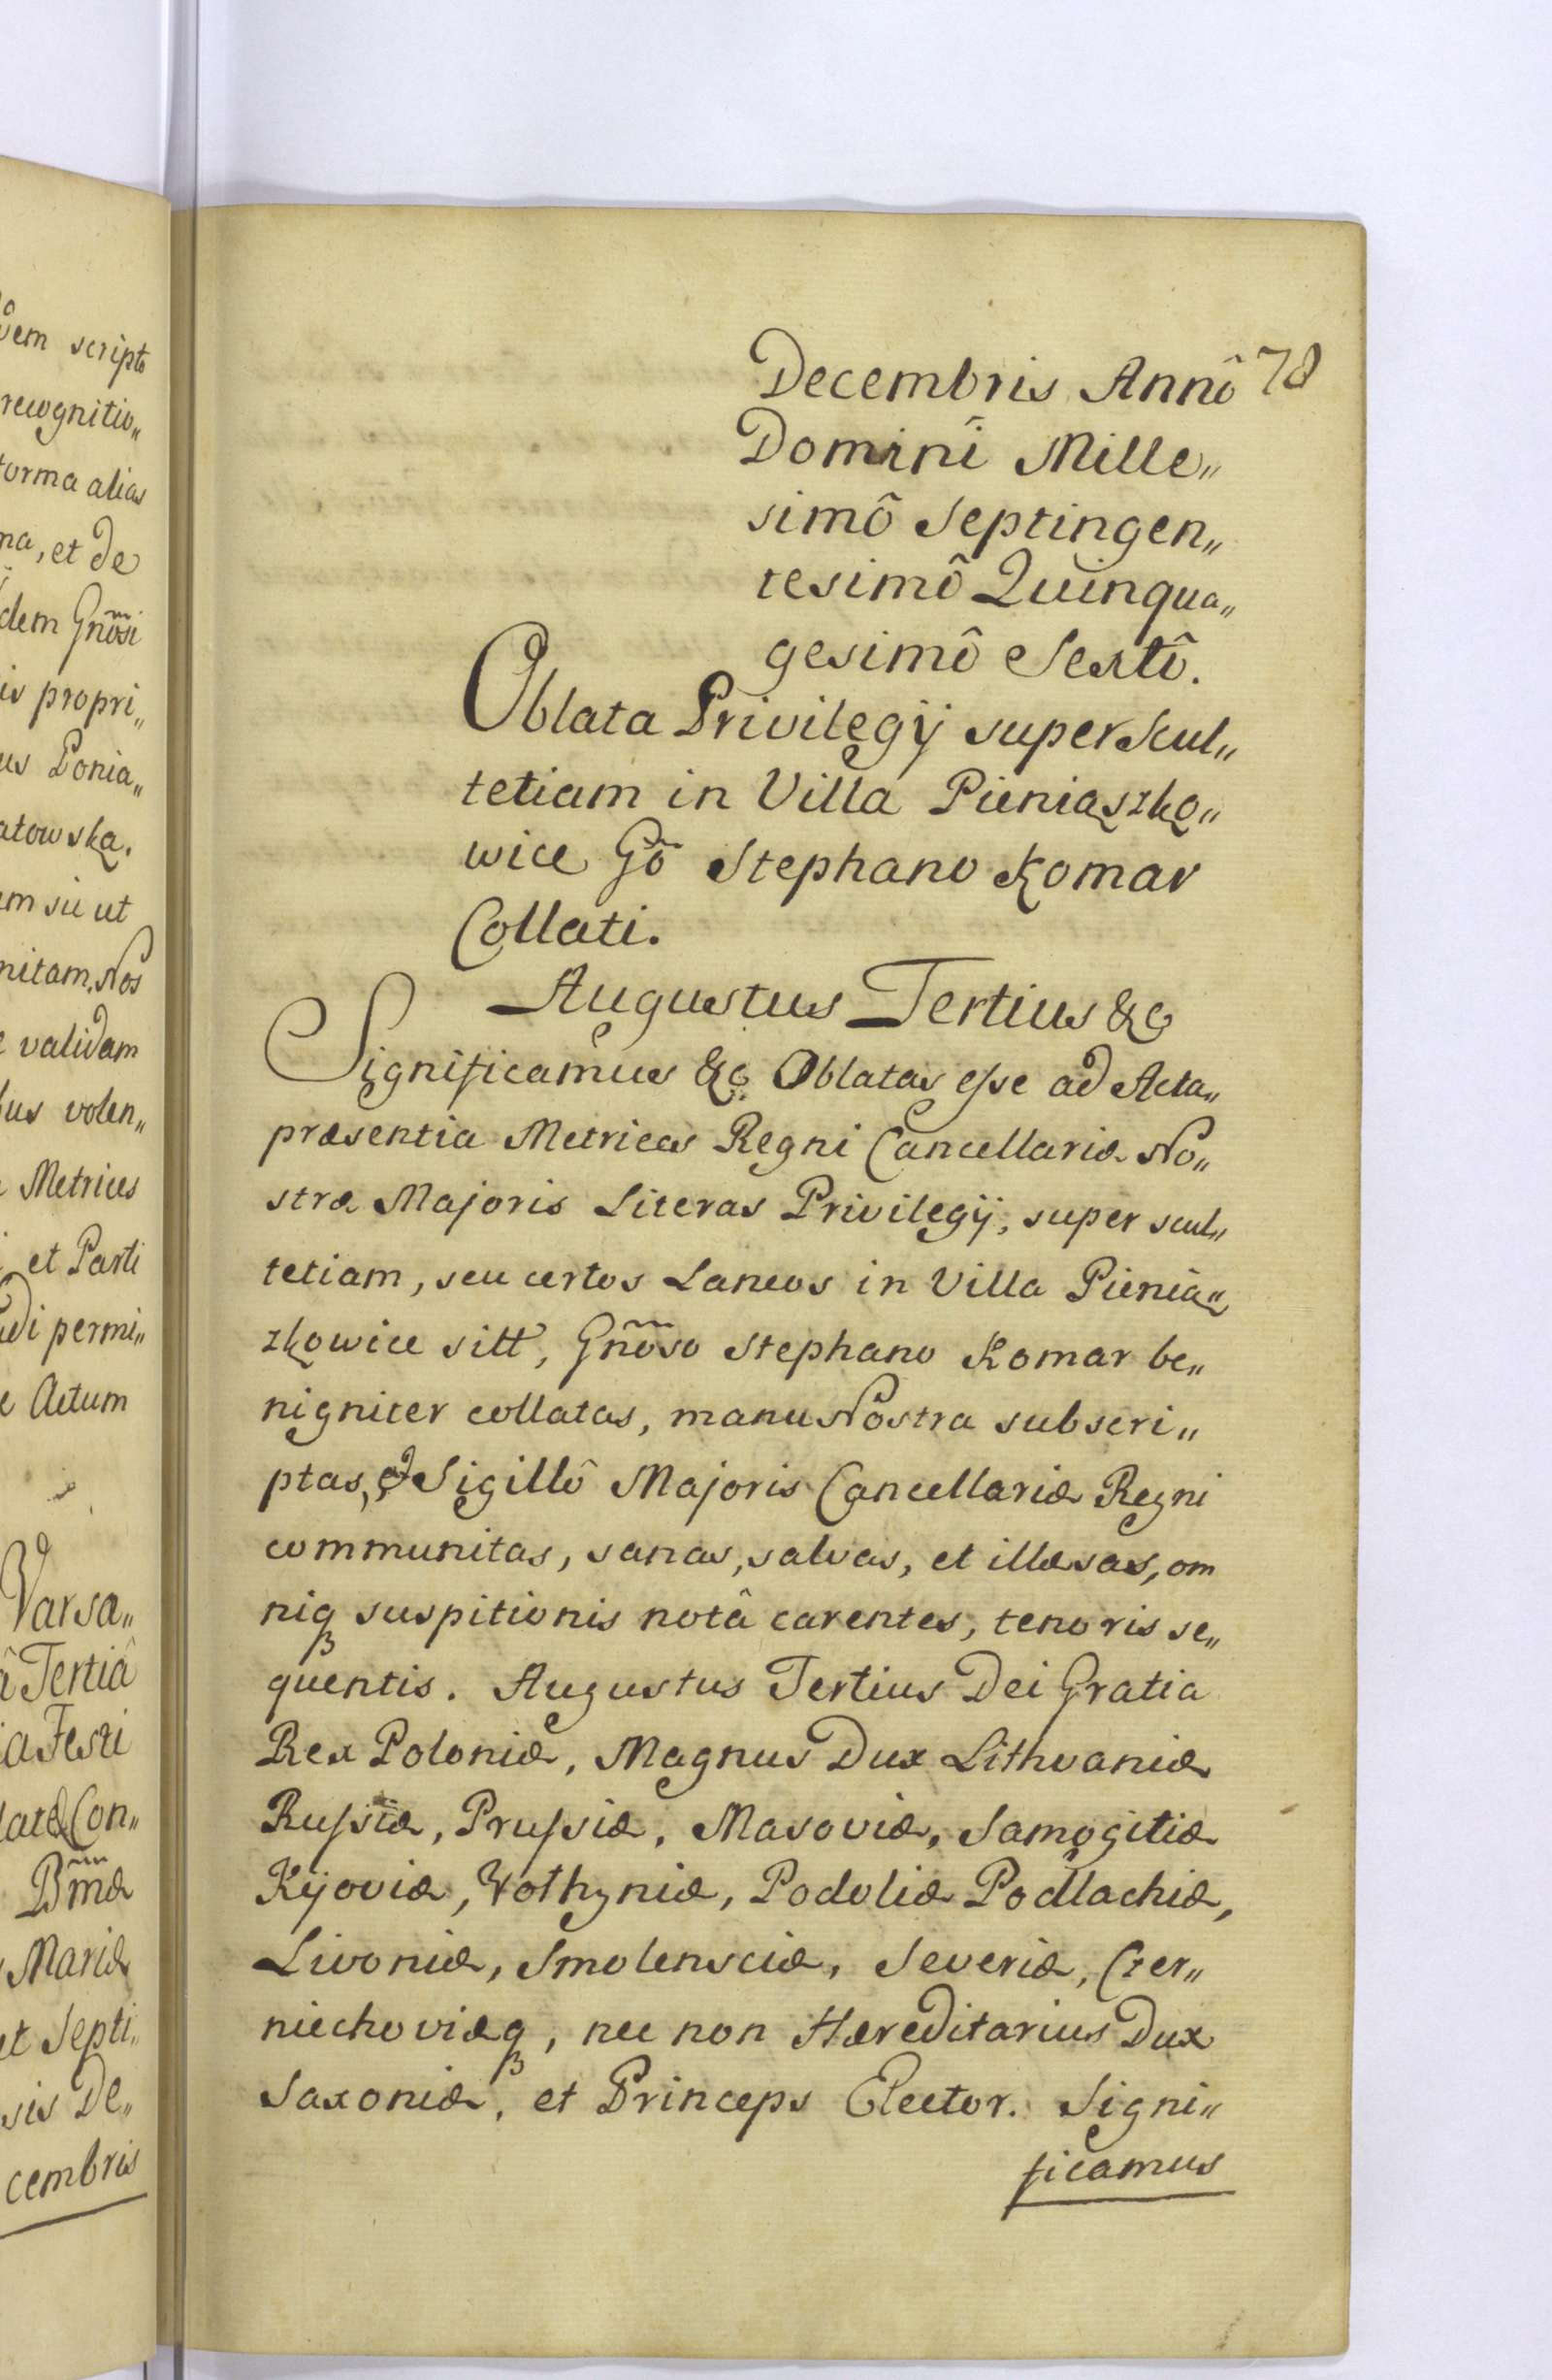 vem scripto
recognitio„
forma alias
ma, et de
dem Gnosi
is propri„
us Ponia„
atowska.
em sic ut
nitam. Nos
e validam
bus volen„
e Metrices
et Parti
edi permi„
e Actum
Varsa„
â Tertiâ
ia Festi
latæ Con„
Bmæ
Mariæ
et Septi„
sis De„
cembris
78
Decembris Annô
Domini Mille„
simô Septingen„
tesimô Quinqua„
gesimô Sextô.
Oblata Privilegÿ super Scul„
tetiam in Villa Pieniąszko„
wice Gõ Stephano Komar
Collati.
Augustus Tertius &c
Significamus &c. Oblatas esse ad Acta„
præsentia Metrices Regni Cancellariæ No„
stræ Majoris Literas Privilegÿ, super scul„
tetiam, seu certos Laneos in Villa Pienią„
zkowice sitt, Gnõso Stephano Komar be„
nigniter collatas, manu Nostra subscri„
ptas, et Sigillô Majoris Cancellariæ Regni
communitas, sanas, salvas, et illæsas, om
niq suspitionis notâ carentes, tenoris se„
quentis. Augustus Tertius Dei Gratia
Rex Poloniæ, Magnus Dux Lithvaniæ
Russiæ, Prussiæ, Masoviæ, Samogitiæ
Kijoviæ, Volhyniæ, Podoliæ Podlachiæ,
Livoniæ, Smolensciæ, Severiæ, Czer„
niechoviæq, nec non Hæreditarius Dux
Saxoniæ, et Princeps Elector. Signi„
ficamus